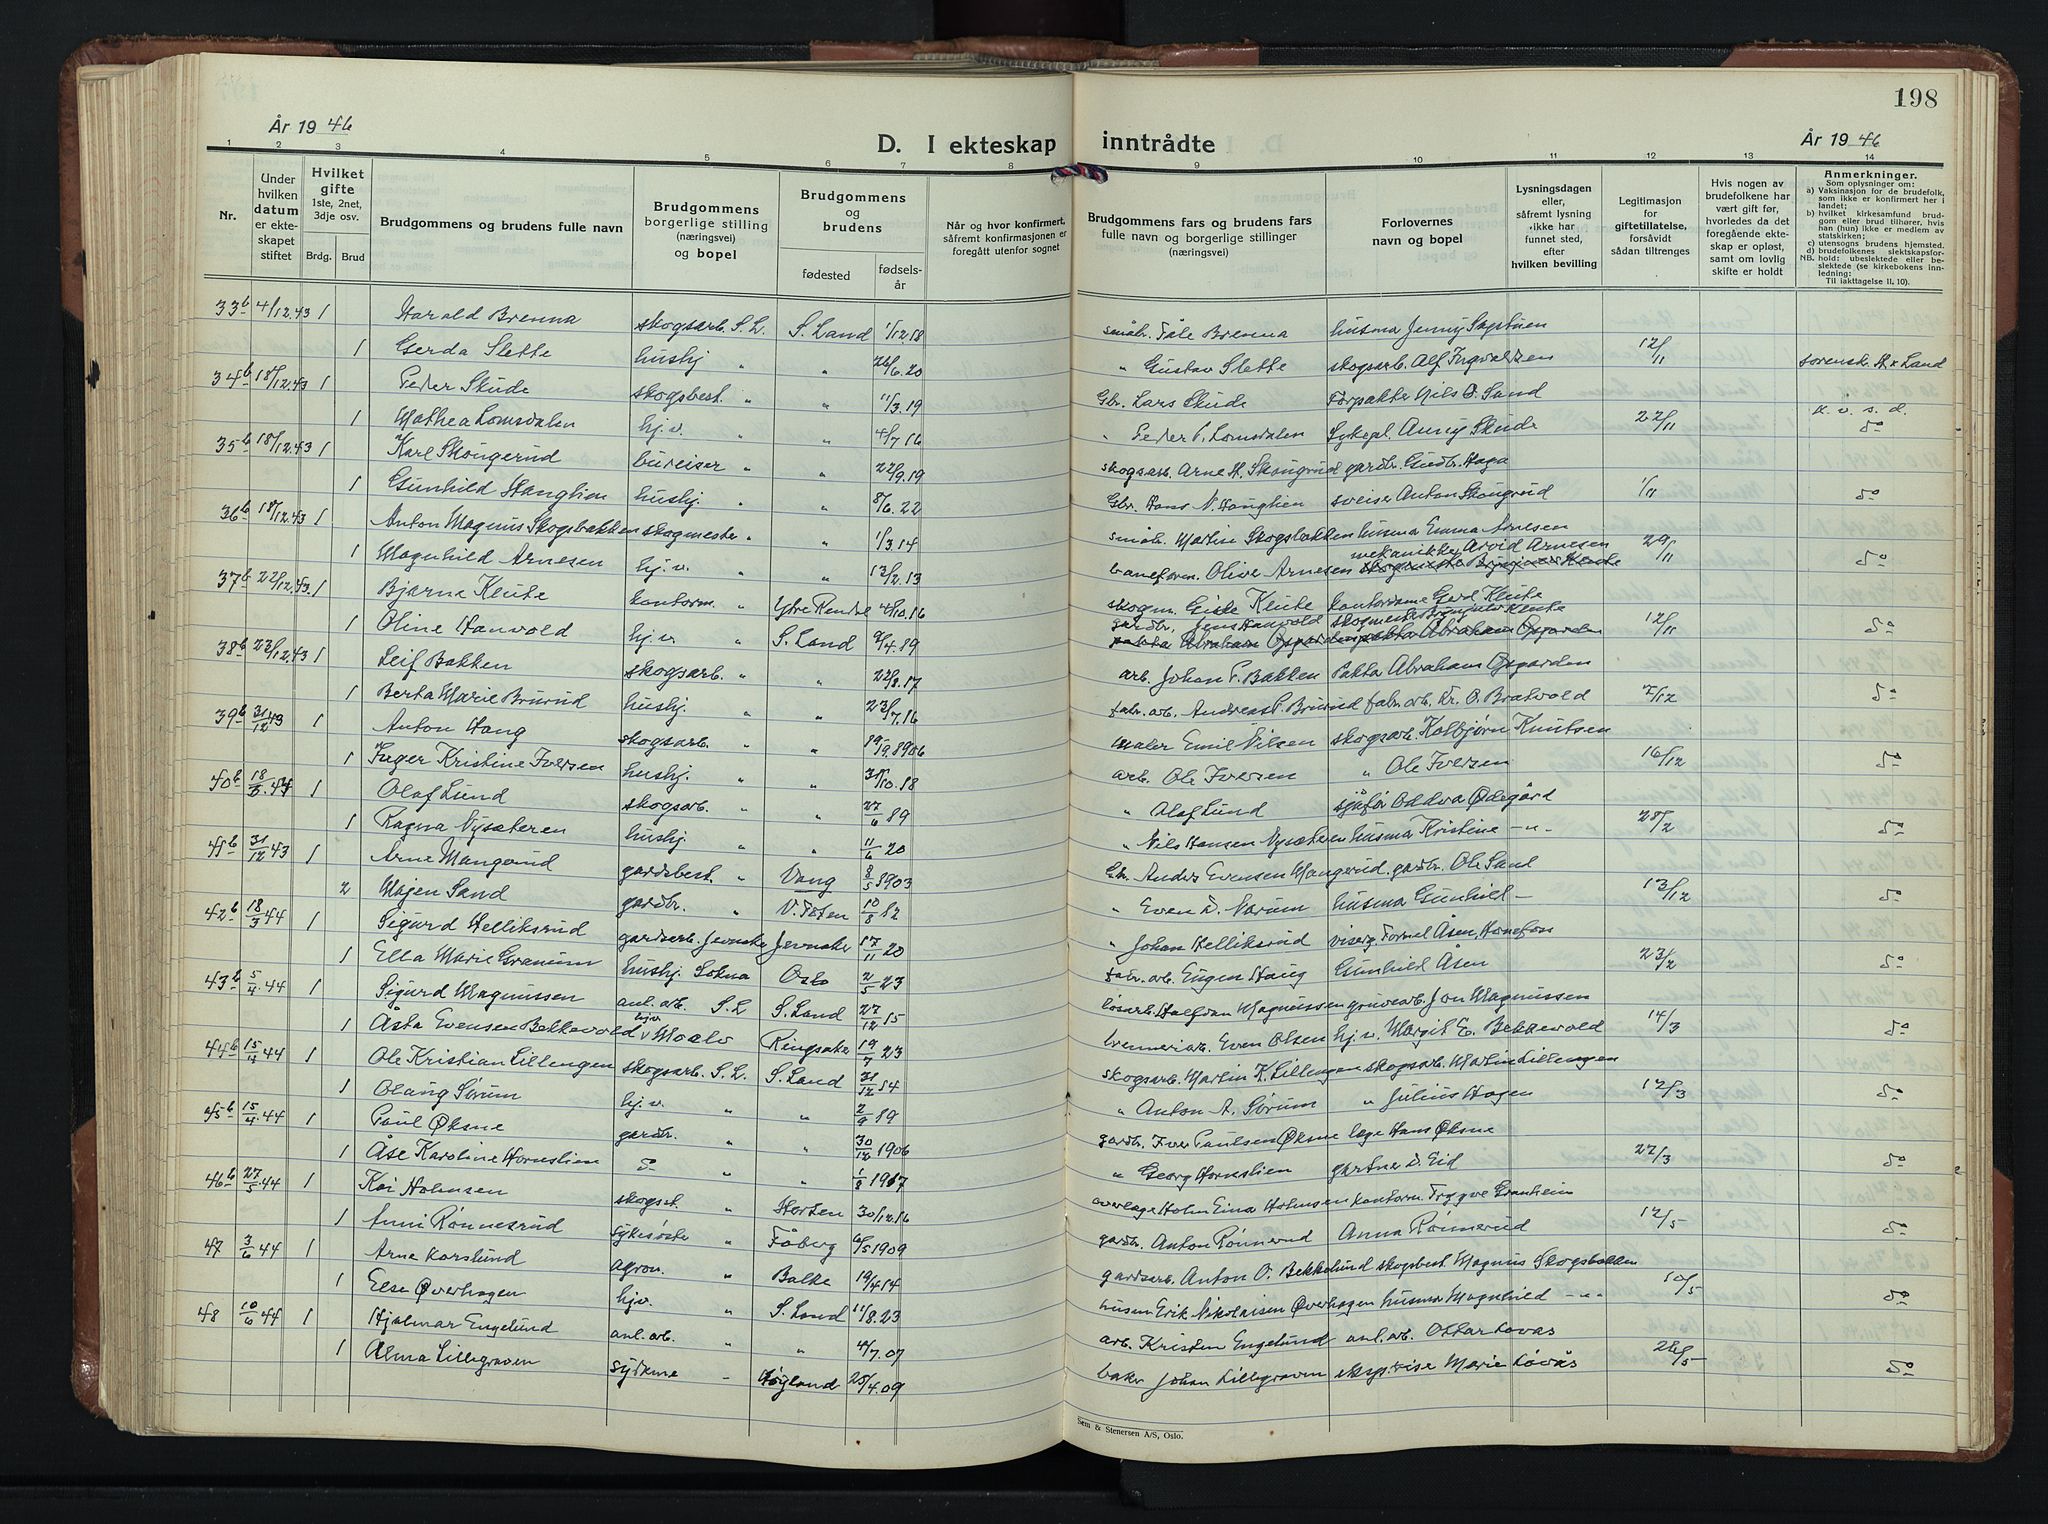 198
År 1946
D. I ekteskap inntrådte
År 1946
1 2 3 4 5 6 7 8 9 10 11 12 13 14
Nr.
Under hvilken datum er ekteskapet stiftet
Hvilket gifte 1ste, 2net, 3dje osv.
Brdg. Brud
Brudgommens og brudens fulle navn
Brudgommens borgerlige stilling (næringsvei) og bopel
Brudgommens og brudens
fødested
fødselsår
Når og hvor konfirmert, såfremt konfirmasjonen er foregått utenfor sognet
Brudgommens fars og brudens fars fulle navn og borgerlige stillinger (næringsvei)
Forlovernes navn og bopel
Lysningsdagen eller, såfremt lysning ikke har funnet sted, efter hvilken bevilling
Legitimasjon for giftetillatelse, forsåvidt sådan tiltrenges
Hvis nogen av brudefolkene har vært gift før, hvorledes da det foregående ekteskap er opløst, samt om lovlig skifte er holdt
Anmerkninger.
Som oplysninger om:
a) Vaksinasjon for de brudefolk, som ikke er konfirmert her i landet;
b) hvilket kirkesamfund brudgom eller brud tilhører, hvis han (hun) ikke er medlem av statskirken;
c) utensogns brudens hjemsted.
d) brudefolkenes slektskapsforhold: ubeslektede eller beslektede (se kirkebokens innledning: Til iakttagelse II, 10).
NB.
33b 4/12.43 1 Harald Brenna skogsarb. S. L. S. Land 1/12 18 småbr. Tåle Brenna husmo Jenny Sagstuen
1 Gerda Slette hushj " " 26/6.20 " Gustav Slette skogsarb. Alf Ingvaldsen 12/11 sorensk. H & Land
34b 18/12.43 1 Peder Skude skogsbest. " " 11/3.19 Gbr. Lars Skude Forpakter Nils O. Sand
1 Mathea Lomsdalen hj.v. " " 4/7 16 " Peder P. Lomsdalen Sykepl. Anny Skude 22/11 do
35b 18/12.43 1 Karl Skougerud bureiser " " 22/9.19 skogsarb. Arne H. Skougrud gardbr. Gudbr. Haga
1 Gunhild Hanghien hushj. " " 8/6.22 Gbr. Hans N. Hanghien sveiser Anton Skougrud 1/11 do
36b 18/12.43 1 Anton Magnus Skogsbakken skogmester " " 1/3.14 småbr. Martin Skogsbakken husmo Emma Arnesen
1 Magnhild Arnesen hj.v. " " 13/2.13 baneform. Oliver Arnesen mekaniker Arvid Arnesen 29/11 do
37b 22/12.43. 1 Bjarne Kleite kontorm. " Ytre Rendal 4/10.16 skogm. Kleite kontordame Gerd Kleite
1 Oline Hanvold hj.v. " S. Land 9/4.19 gardbr. Jens Hanvold skogmester 12/11 do
38b 22/12.43 1 Leif Bakken skogsarb. " " 22/8.17 arb. Johan P. Bakken Pakter Abraham Øsgarden
1 Berta Marie Brurud hushj. " " 23/7.16 fabr. arb. Andreas P. Brurud fabr. arb. Kr. O. Bratvold 7/12 do
39b 31/12 43 1 Anton Haug skogsarb. " " 19/9.1906 maler Emil Nilsen skogsarb. Kolbjørn Knutsen
1 Inger Kristine Iversen hushj. " " 31/10.18 arb. Ole Iversen " Ole Iversen 16/12 do
40b 18/3.44 1 Olaf Lund skogsarb. " " 27/6 19 " Olaf Lund sjåfør Oddvar Ødegård
1 Ragna Nysæteren hushj. " " 11/6 20 " Nils Hansen Nysæteren husmo Kristine -"- 28/2 do
41b 31/12 43 1 Arne Mangerud gardsbest. " Vang 8/5 1903 Gbr. Anders Evensen Mangerud gardbr. Ole Sand
2 Majen Sand gardbr. " V. Toten 10/8 12 " Even D. Narum husmo Gunhild - 13/12 do
42b 18/3 44 1 Sigurd Helliksrud gardsarb. Jevnaker Jevnaker 17/11 20 " Johan Helliksrud Åsen, Hønefoss
1 Ella Marie Granum hushj. Sokna Oslo 2/5 23 fabr. arb. Eugen Haug Gunhild Åsen 23/2 do
43b 5/4.44 1 Sigurd Magnussen anl. arb. S. L S. Land 27/12 15 løsarb. Halfdan Magnussen gruvearb. Jon Magnussen
1 Åsta Evensen Bekkevold hj.v. Moelv Ringsaker 19/7 23 brenneriarb. Even Olsen hj. v. Margit E. Bekkevold 14/3 do
44b 15/4 44 1 Ole Kristian Lillengen skogsarb. S. L. S. Land 31/12 14 skogsarb. Martin K. Lillengen skogsarb. Martin Lillengen
1 Olaug Sørum hj. v. " " 2/9 19 " Anton A. Sørum " Julius Hagen 12/3 do
45b 15/4.44 1 Paul Øksne gardbr. " " 30/12 1906 gardbr. Iver Paulsen Øksne læge Hans Øksne
1 Åse Karoline Hornslien " " 1/8 1917 " Georg Hornslien gartner D. Eid 27/3 do
46b 27/5 44 1 Kai Holmsen skogset. " Horten 30/12.16 overlæge Holm Einar Holmsen kontorm. Trygve Granheim
1 Anni Rønnesrud sykesøster " Fåberg 6/5 1909 gardbr. Anton Rønnerud Anna Rønnerud 12/5 do
47 3/6 44 1 Arne Karslund agron. " Balke 19/4 14 gardsarb. Anton O. Bekkelund skogsbest. Magnus Skogsbakken
1 Else Øverhagen hjv. " S. Land 11/8.23 husm Erik Nikolaisen Øverhagen husmo Magnhild -"- 10/5 do
48 10/6 44 1 Hjalmar Engelund anl. arb. " " 4/7.07 arb. Kristen Engelund anl. arb. Ottar Løvås
1 Alma Lillegraven sydame - Høyland 25/4.09 baker Johan Lillegraven Marie Løvås 26/5 do
Sem & Stenersen A/S, Oslo.